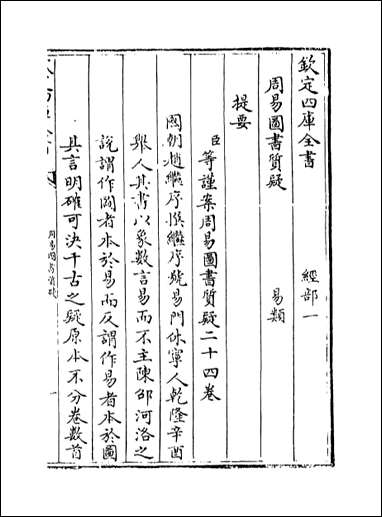 欽定四庫全書　經部一
周易圖書質疑　易類
提要
臣等謹案周易圖書質疑二十四卷
國朝趙繼序撰繼序號易門休寧人乾隆辛酉
舉人其書以象數言易而不主陳邵河洛之
說謂作圖者本於易而反謂作易者本於圖
其言明確可決千古之疑原本不分卷數首
周易圖書質疑